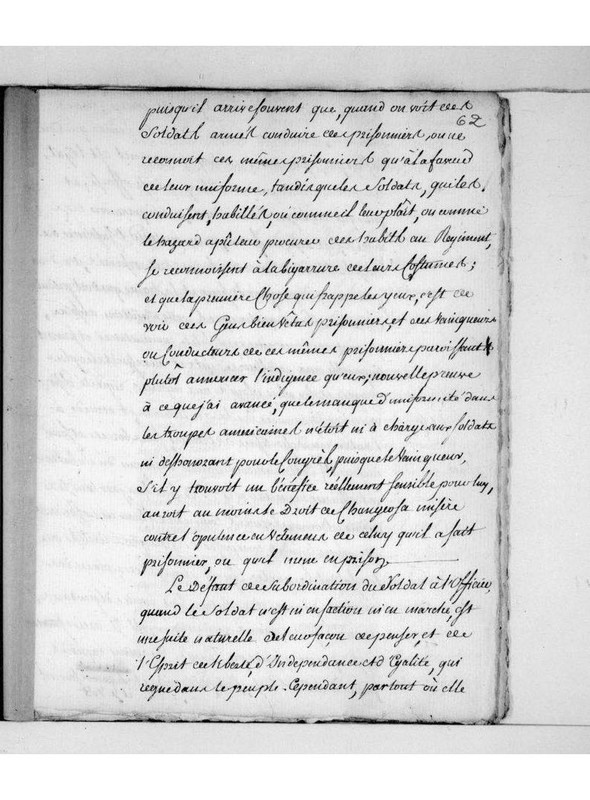 puisqu'il arrive souvent que, quand on voit des
62
Soldats armés conduire des prisonniers, on ne
reconnoit ces mêmes prisonniers qu'à la faveur
de leur uniforme, tandis que les Soldats, qui les
conduisent, habillés, ou comme il leur plaît, ou comme
le hazard a pû leur procurer des habits au Régiment,
se reconnoissent à la bigarrure de leurs Costumes;
et que la première Chose qui frappe les yeux, c'est de
voir des Gens bien Vêtus prisonniers, et des Vainqueurs
ou Conducteurs de ces mêmes prisonniers paroissant
plutôt annoncer l'indigence qu'eux; nouvelle preuve
à ce que j'ai avancé, que le manque d'uniformité dans
les troupes americaines n'étoit ni à charge aux soldats
ni deshonorant pour le Congrès, puisque le Vainqueur,
s'il y trouvoit un bénéfice réellement sensible pour luy,
auroit au moins le Droit de Changer sa misère
contre l'opulence en Vêtemens de celuy qu'il a fait
prisonnier, ou qu'il mene en prison.
Le Défaut de Subordination du Soldat à l'Officier,
quand le Soldat n'est ni en faction ni en marche, est
une suite naturelle de leur façon de penser, et de
l'Esprit de liberté, d'Independance et d'Egalité, qui
regne dans le peuple. Cependant, partout où elle